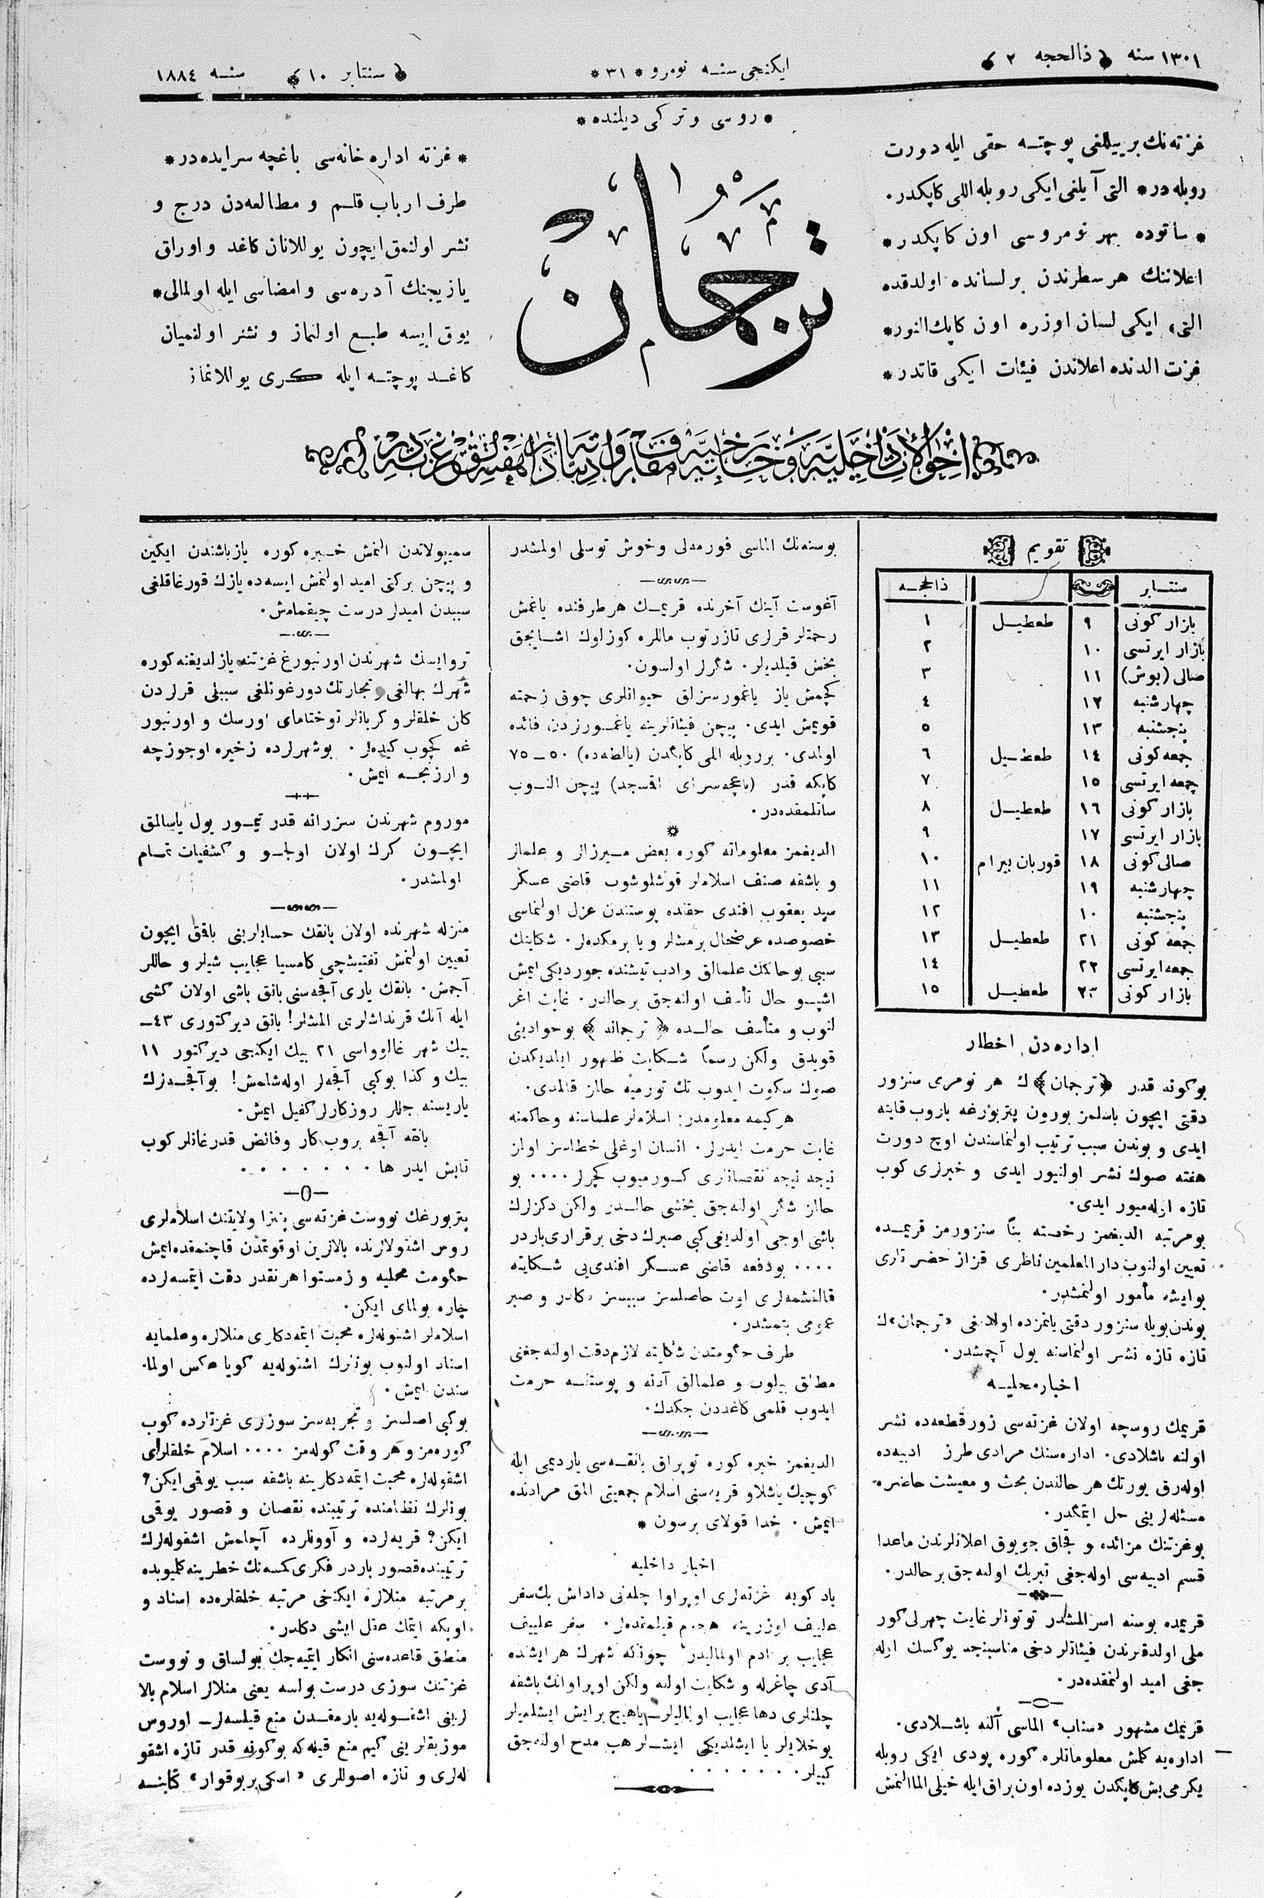 ١٣٠١ سنه ذالحجه ٢
ايكنجى سنه نومرو ٣١
سنتابر ١٠ سنه ١٨٨٤
روسى و تركى ديلنده
غزته‌نك بر ييللغى پوچته حقى ايله دورت
روبله در* التى آيلغى ايكى روبله اللى كاپكدر.
* ساتوده بهر نومروسى اون كاپكدر*
اعلاننك هر سطرندن بر لسانده اولدقده
التى، ايكى لسان اوزره اون كاپك النور*
غزت الدنده اعلاندن فيئات ايكى قاتدر*
ترجمان
* غزته اداره خانه‌سى باغچه سرايده‌در*
طرف ارباب قلم و مطالعه‌دن درج و
نشر اولنمق ايچون يوللانان كاغد و اوراق
يازيجينك آدره‌سى و امضاسى ايله اولمالى*
يوق ايسه طبع اولنماز و نشر اولنميان
كاغد پوچته ايله كرى يوللانماز
تقويم
سنتابر ذالحجه
بازار كونى ٩ طعطيل ١
بازار ايرتسى ١٠ ٢
صالى (بوش) ١١ ٣
چهارشنبه ١٢ ٤
پنجشنبه ١٣ ٥
جمعه كونى ١٤ طعطيل ٦
جمعه ايرتسى ١٥ ٧
بازار كونى ١٦ طعطيل ٨
بازار ايرتسى ١٧ ٩
صالى كونى ١٨ قوربان بيرام ١٠
چهارشنبه ١٩ ١١
پنجشنبه ١٠ ١٢
جمعه كونى ٢١ طعطيل ١٣
جمعه ايرتسى ٢٢ ١٤
بازار كونى ٢٣ طعطيل ١٥
اداره‌دن اخطار
بوكونه قدر «ترجمان» ك هر نومرى سنزور
دقتى ايچون باصلمز بورون پتربورغه باروب قايته
ايدى و بوندن سبب ترتيب اولنماسندن اوچ دورت
هفته صوك نشر اولنيور ايدى و خبرلرى كوب
تازه اوله‌ميور ايدى.
بو مرتبه الديغمز رخصته بناً سنزورمز قريمده
تعيين اولنوب دار المعلمين ناظرى قزاز حضرتلرى
بو ايشه مأمور اولنمشدر.
بوندن بويله سنزور دقتى يانمزده اولاجغى «ترجمان»ك
تازه تازه نشر اولنماسنه يول آچمشدر.
اخبار محليه
قريمك روسچه اولان غزته‌سى زور قطعه‌ده نشر
اولنه باشلادى. اداره‌سنك مرادى طرز ادبيه‌ده
اوله‌رق يورتك هر حالندن بحث و معيشت حاضره
مسئله‌لرينى حل ايتمكدر.
بو غزتنك مزائده، و قچاق جويوق اعلانلرندن ماعدا
قسم ادبيه‌سى اوله‌جغى تبريك اولنه‌جق بر حالدر.
قريمده بوسنه اسرالمشدر توتونلر غايت چهرلى كور
ملى اولدقلرندن فيئاتلر دخى مناسبنجه يوكسك اوله
جغى اميد اولنمقده‌در.
قريمك مشهور «سناب» الماسى آلنه باشلادى.
اداره‌يه كلمش معلوماتلره كوره پودى ايكى روبله
يكرمى بش كاپكدن يوزده اون براق ايله خيلى الما النمش
بوسنه‌نك الماسى فورمه‌لى و خوش توسلى اولمشدر
آغوست آينك آخرنده قريمك هر طرفنده ياغمش
رحمتلر قرلرى تازرتوب ماللره كوزلوك اشايجق
بخش قيلديلر. شكرلر اولسون.
كچمش ياز ياغمورسزلق حيوانلرى چوق زحمته
قويمش ايدى. پيچن فيئاتلرينه ياغمورزدن فائده
اولدى. بر روبله اللى كاپكدن (يالطه‌ده) ٥٠ـ٧٥
كاپكه قدر (باغچه‌سراى اقمسجد) پيچن النوب
ساتلمقده‌در.
الديغمز معلوماته كوره بعض ميرزالر و علمالر
و باشقه صنف اسلاملر قوشلوشوب قاضى عسكر
سيد يعقوب افندى حقنده پوستندن عزل اولنماسى
خصوصده عرضحال برمشلر و يا برمكده‌لر. شكايتك
سببى بو حاكمك علمالق و ادب تيشنده جوردیكى ايمش
اشبو حال تأسف اولنه‌جق بر حالدر. غايت اغر
لنوب و متأسف حالده «ترجمانه» بو حوادثى
قويدق ولكن رسماً شكايت ظهور ايلديكدن
صوك سكوت ايدوب تك تورميه حالز قالمدى.
هر كيمه معلومدر: اسلاملر علماسنه و حاكمنه
غايت حرمت ايدرلر. انسان اوغلى خطاسز اولماز
نيجه نيجه نقصانلرى كورميوب كچرلر.... بو
حالز شكر اولنه‌جق بخشى حالدر ولكن دكزلرك
باشى اوجى اولديغى كبى صبرك دخى برقرارى باردر
.... بو دفعه قاضى عسكر افندى‌يى شكايته
قالقشمه‌لرى اوت حاصلسز سببسز دكلدر و صبر
عمومى بتمشدر.
طرف حكومتدن شكايته لازم دقت اولنه‌جغى
مطلق بيلوب و علمالق آدنه و پوستنه حرمت
ايدوب قلمى كاغددن چكدك.
الديغمز خبره كوره توپراق بانقه‌سى يارديمى ايله
كوچيك ياشلاو قريه‌سنى اسلام جمعيتى المق مرادنده
ايمش. خدا قولاى برسون *
اخبار داخليه
بادكوبه غزته‌لرى اوپراوا چلنى داداش بك سفر
علييف اوزرينه هجوم قيلمقده‌لر. سفر علييف
عجايب بر ادم اولماليدر چونكه شهرك هر ايشنده
آدى چاغرله و شكايت اولنه ولكن اوپراوانك باشقه
چلنلرى دها عجايب اولماليلر ياهيچ بر ايش ايشلميلر
يوخلايلر يا ايشلديكى ايشلر هب مدح اولنه‌جق
كبيلر.......
سميپولاتدن النمش خبره كوره ياز باشندن ايكين
و پيچن بركتى اميد اولنمش ايسه‌ده يازك قورغاقلغى
سببدن اميدلر درست چيقمامش.
ترويسك شهرندن اورنبورغ غزتنه يازلديغنه كوره
شهرك بهالغى و تجارتك دورغونلغى سببلى قرلردن
كان خلقلر و كربانلر توختاماى اورسك و اورنبور
غه كچوب كيده‌لر. بو شهرلرده ذخيره اوجوزچه
و ارزنجه ايمش.
موروم شهرندن سزرانه قدر تيمور يول ياسالمق
ايچون كرك اولان اولچو و كشفيات تمام
اولمشدر.
منزله شهرنده اولان بانقك حسابلرينى باقق ايچون
تعيين اولنمش تفتيشچى كاميسيا عجايب شيلر و حاللر
آچمش. بانقك يارى آقچه‌سنى بانق باشى اولان كشى
ايله آنك قرنداشلرى المشلر! بانق ديركتورى ٤٣ـ
بيك شهر غالوواسى ٢١ بيك ايكنجى ديركتور ١١
بيك و كذا بو كبى آقچه‌لر اوله‌شلمش! بو آقچه‌لرك
ياريسنه جللر روزكارلر كفيل ايمش.
بانقه آقچه بروب كار و فائض قدرغانلر كوب
تابش ايدر ها.......
پتربورغك نووست غزته‌سى پنزا ولايتنك اسلاملرى
روس اشقولارنده بالالرين اوقوتمقدن قاچنمقده ايمش
حكومت محليه و زمستوا هر نقدر دقت ايتسه‌لرده
چاره بولماى ايكن.
اسلاملر اشقوله‌لره محبت ايتمه‌دكلرى منلالره و علمايه
اسناد اولنوب بونلرك اشقوله‌يه كويا عكس اولما
سندن ايمش.
بو كبى اصلسز و تجربه‌سز سوزلرى غزتلرده كوب
كوره‌مز و هر وقت كوله‌مز.... اسلام خلقلرى
اشقوله‌لره محبت ايتمه‌دكلرينه باشقه سبب يوقى ايكن؟
بونلرك نظامنده ترتيبنده نقصان و قصور يوقى
ايكن؟ قريه‌لرده و آووللرده آچلمش اشقوله‌لرك
ترتيبنده قصور باردر فكرى كمسه‌نك خطرينه كلميوبده
بر مرتبه منلالره ايكنجى مرتبه خلقلره‌ده اسناد و
اوپكه ايتمك عقل ايشى دكلدر.
منطق قاعده‌سنى انكار ايتميه‌جك بولساق و نووست
غزتنك سوزى درست بولسه يعنى منلالر اسلام بالا
لرينى اشقوله‌يه بارمقدن منع قيلسه‌لر اوروس
موژيقلرينى كيم منع قيله كه بوكونه قدر تازه اشقو
له‌لرى و تازه اصوللرى «اسكى بر بوقوار» كتابنه